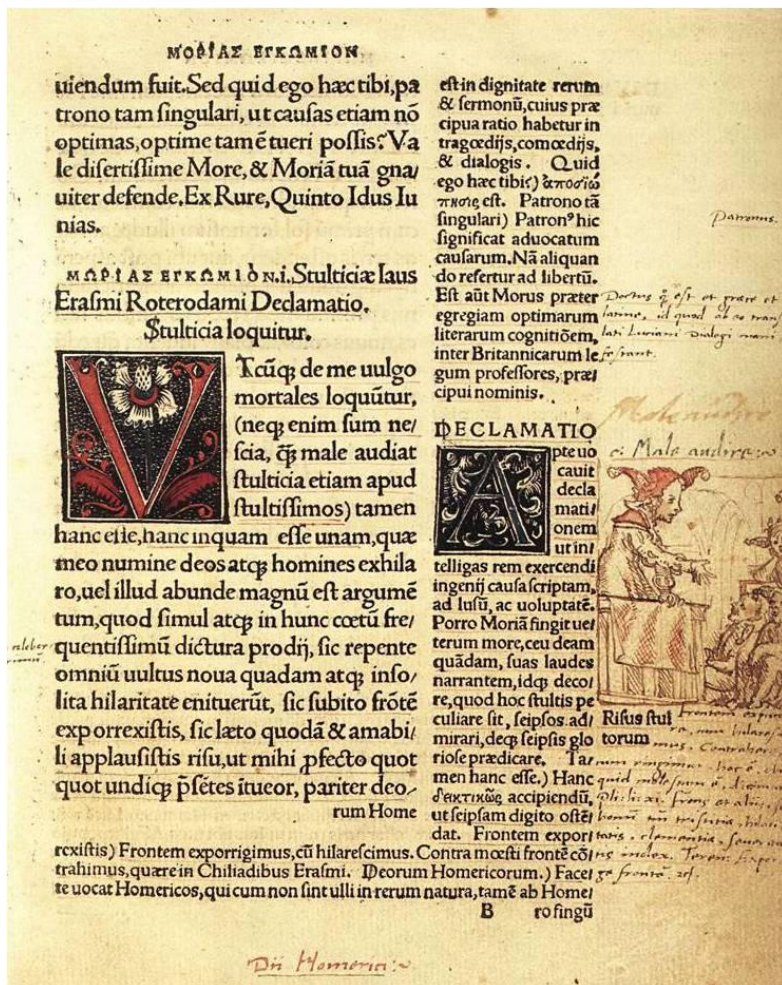 ΜΟΡΙΑΣ ΕΓΚΩΜΙΟΝ
uiendum fuit. Sed quid ego hæc tibi, pa
trono tam singulari, ut causas etiam nõ
optimas, optime tamẽ tueri possis? Va
le disertissime More, & Moriã tuã gna/
uiter defende. Ex Rure, Quinto Idus Iu
nias.
ΜΩΡΙΑΣ ΕΓΚΩΜΙΟΝ.i. Stulticiæ laus
Erasmi Roterodami Declamatio.
Stulticia loquitur.
VTcũq; de me uulgo
mortales loquũtur,
(neq; enim sum ne/
scia, q̃; male audiat
stulticia etiam apud
stultissimos) tamen
hanc esse, hanc inquam esse unam, quæ
meo numine deos atq; homines exhila
ro, uel illud abunde magnũ est argumẽ
tum, quod simul atq; in hunc cœtũ fre/
quentissimũ dictura prodij, sic repente
omniũ uultus noua quadam atq; inso/
lita hilaritate enituerũt, sic subito frõtẽ
exporrexistis, sic læto quodã & amabi/
li applausistis risu, ut mihi ꝓfecto quot
quot undiq; p̃sẽtes ĩtueor, pariter deo/
rum Home
est in dignitate rerum
& sermonũ, cuius præ
cipua ratio habetur in
tragœdijs, comœdijs,
& dialogis. Quid
ego hæc tibi?) ἀποσιώ
πησις est. Patrono tã
singulari) Patronꝰ hic
significat aduocatum
causarum. Nã aliquan
do refertur ad libertũ.
Est aũt Morus præter
egregiam optimarum
literarum cognitiõem,
inter Britannicarum le
gum professores, præ/
cipui nominis.
Patronus.
Doctus q̃ est et græce et
latine, id quod ab eo trans
lati Luciani Dialogi mani
festant.
DECLAMATIO
Apte uo
cauit
decla
mati/
onem
ut in/
telligas rem exercendi
ingenij causa scriptam,
ad lusũ, ac uoluptatẽ.
Porro Moriã fingit ue/
terum more, ceu deam
quãdam, suas laudes
narrantem, idq; deco/
re, quod hoc stultis pe
culiare sit, seipsos ad/
mirari, deq; seipsis glo
riose prædicare. Ta/
men hanc esse.) Hanc
δεικτικῶς accipiendũ,
ut seipsam digito ostẽ/
dat. Frontem expor/
rexistis) Frontem exporrigimus, cũ hilarescimus. Contra mœsti frontẽ cõ/
trahimus, quære in Chiliadibus Erasmi. Deorum Homericorum.) Face/
te uocat Homericos, qui cum non sint ulli in rerum natura, tamẽ ab Home/
B ro fingũ
Male audire
c: Male audire:
Risus stul
torum
Dii Homerici: